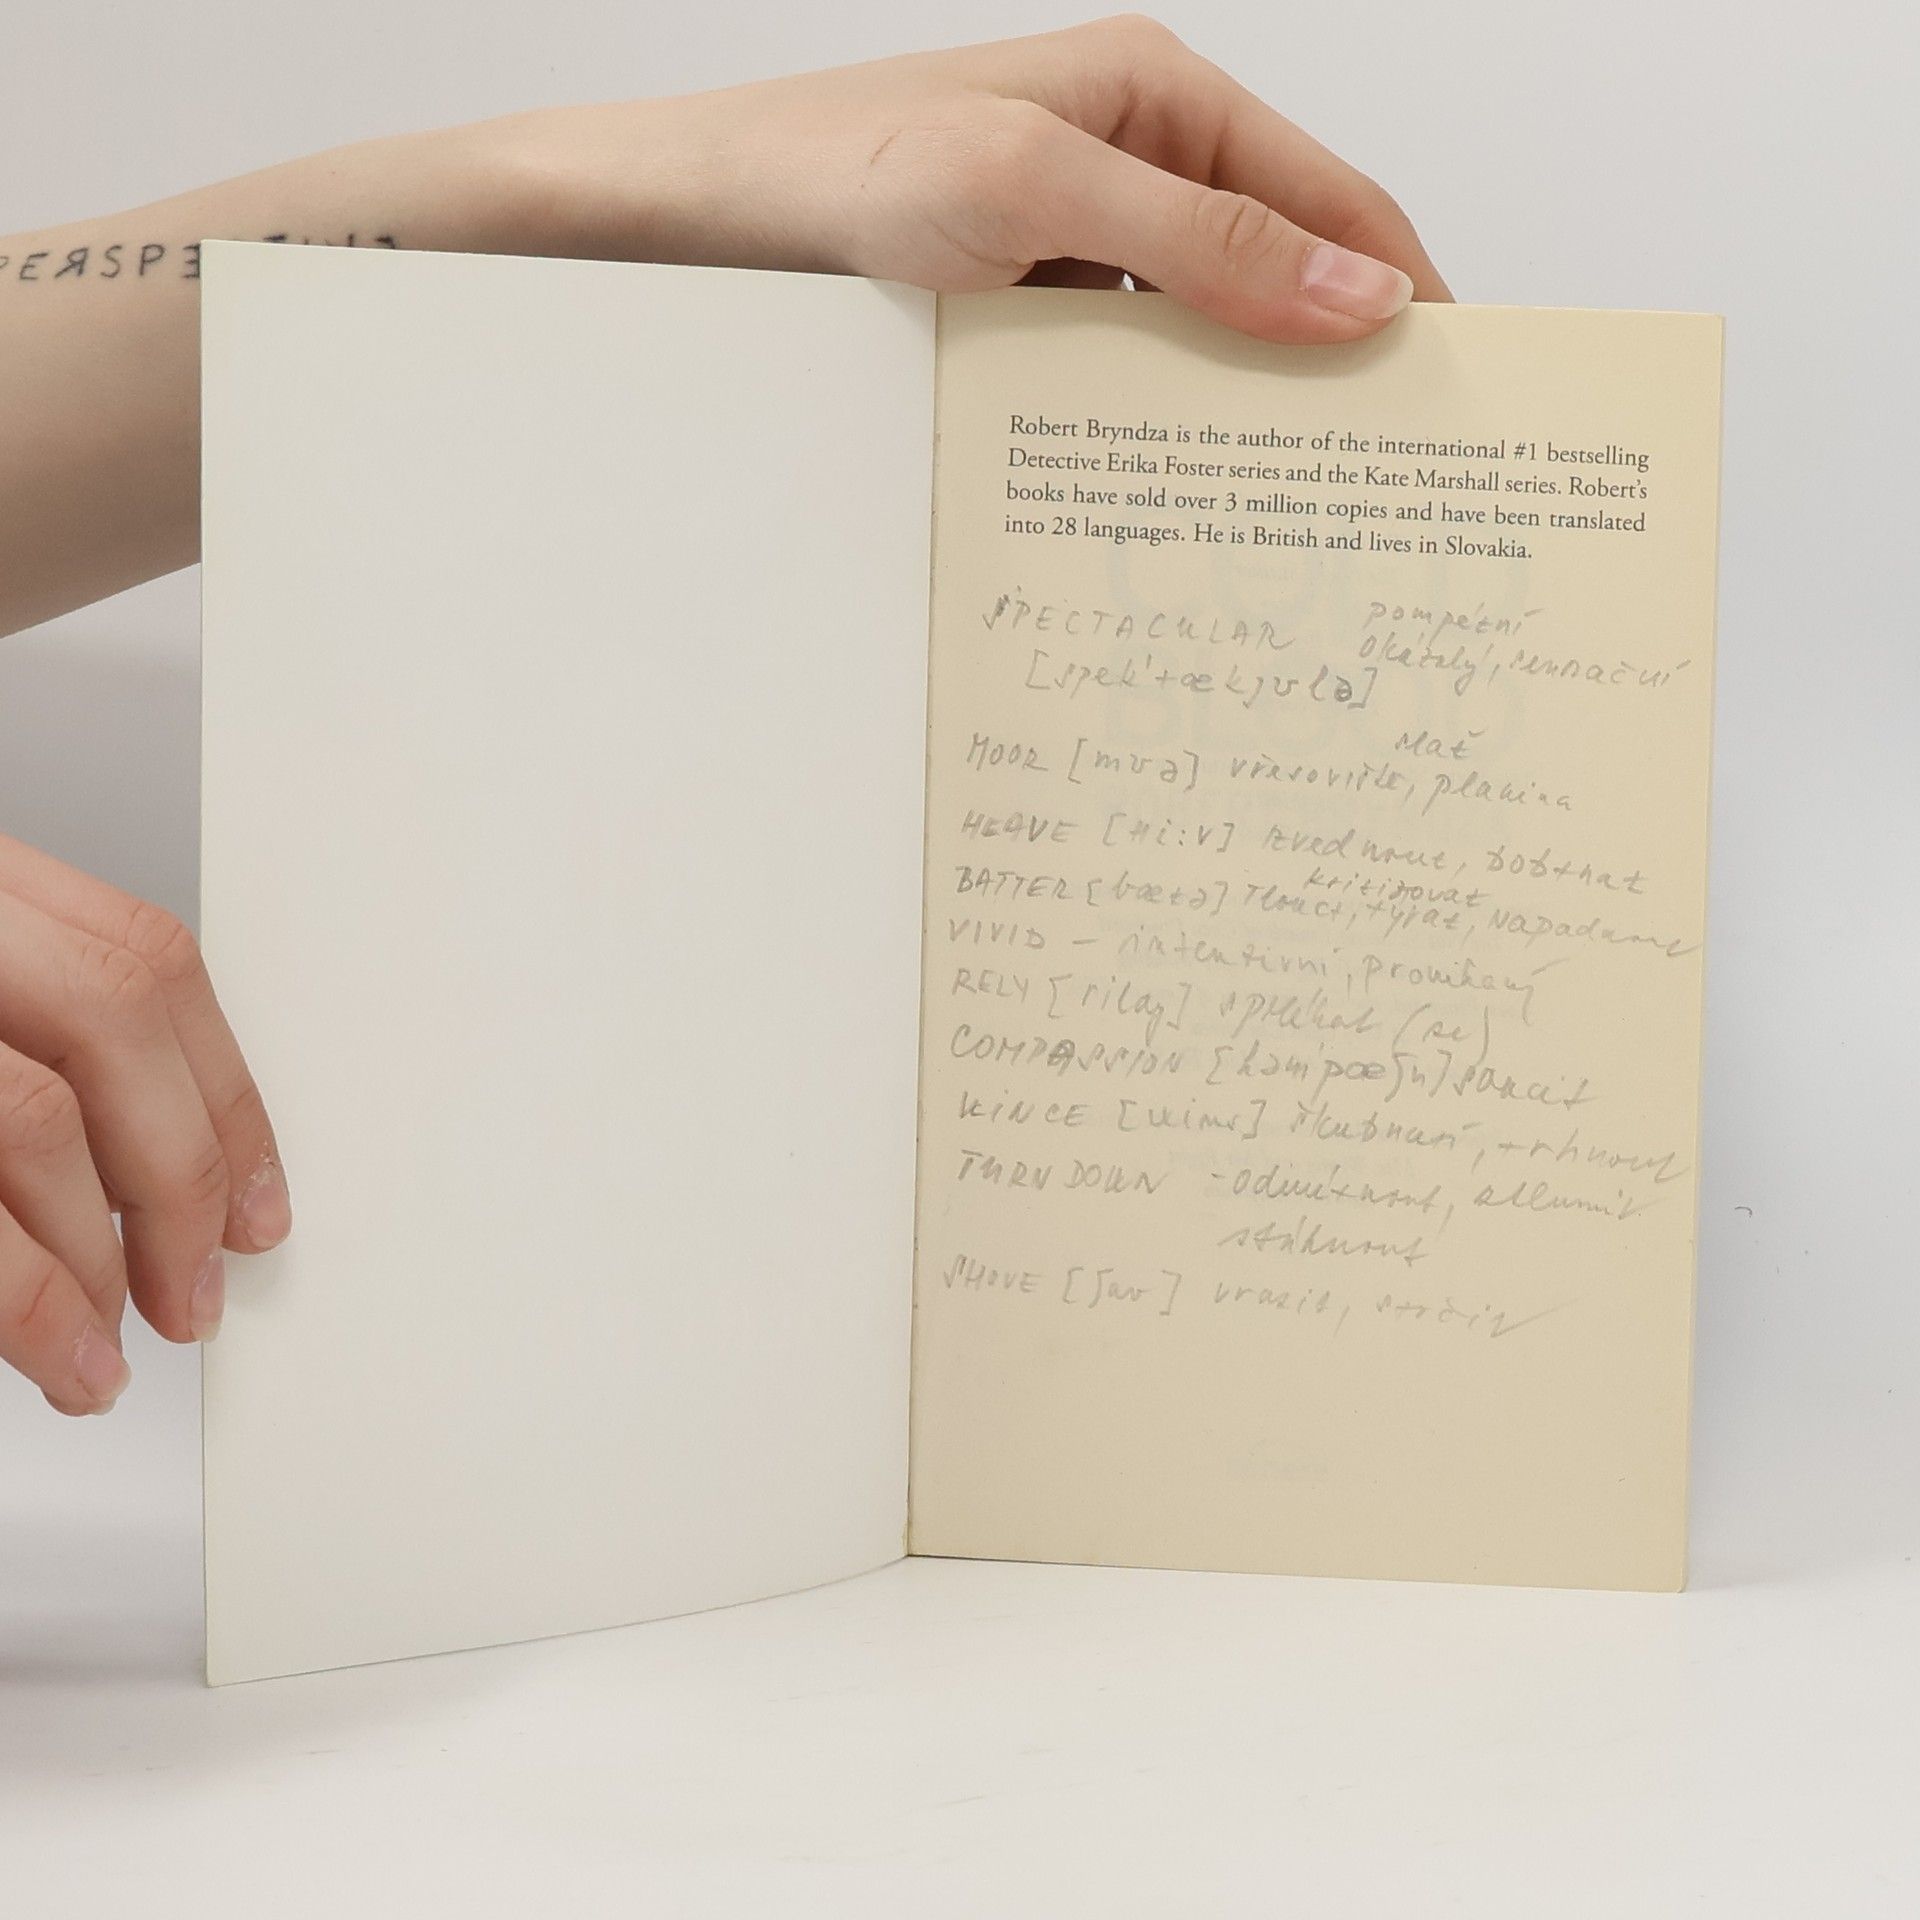 PERSPE
Robert Bryndza is the author of the international #1 bestselling
Detective Erika Foster series and the Kate Marshall series. Robert's
books have sold over 3 million copies and have been translated
into 28 languages. He is British and lives in Slovakia.
SPECTACULAR pompézní
okázalý, senzační
[spek'tækjʊlə]
slať
MOOR [mʊə] vřesoviště, planina
HEAVE [Hi:V] zvednout, bobtnat
kritizovat
BATTER [bætə] tlouct, týrat, napadnout
VIVID - intenzivní, pronikavý
RELY [rilay] spoléhat (se)
COMPASSION [kəm'pæʃn] soucit
škubnutí, trhnout
TURN DOWN - odmítnout, ztlumit
stáhnout
SHOVE [ʃav] vrazit, strčit